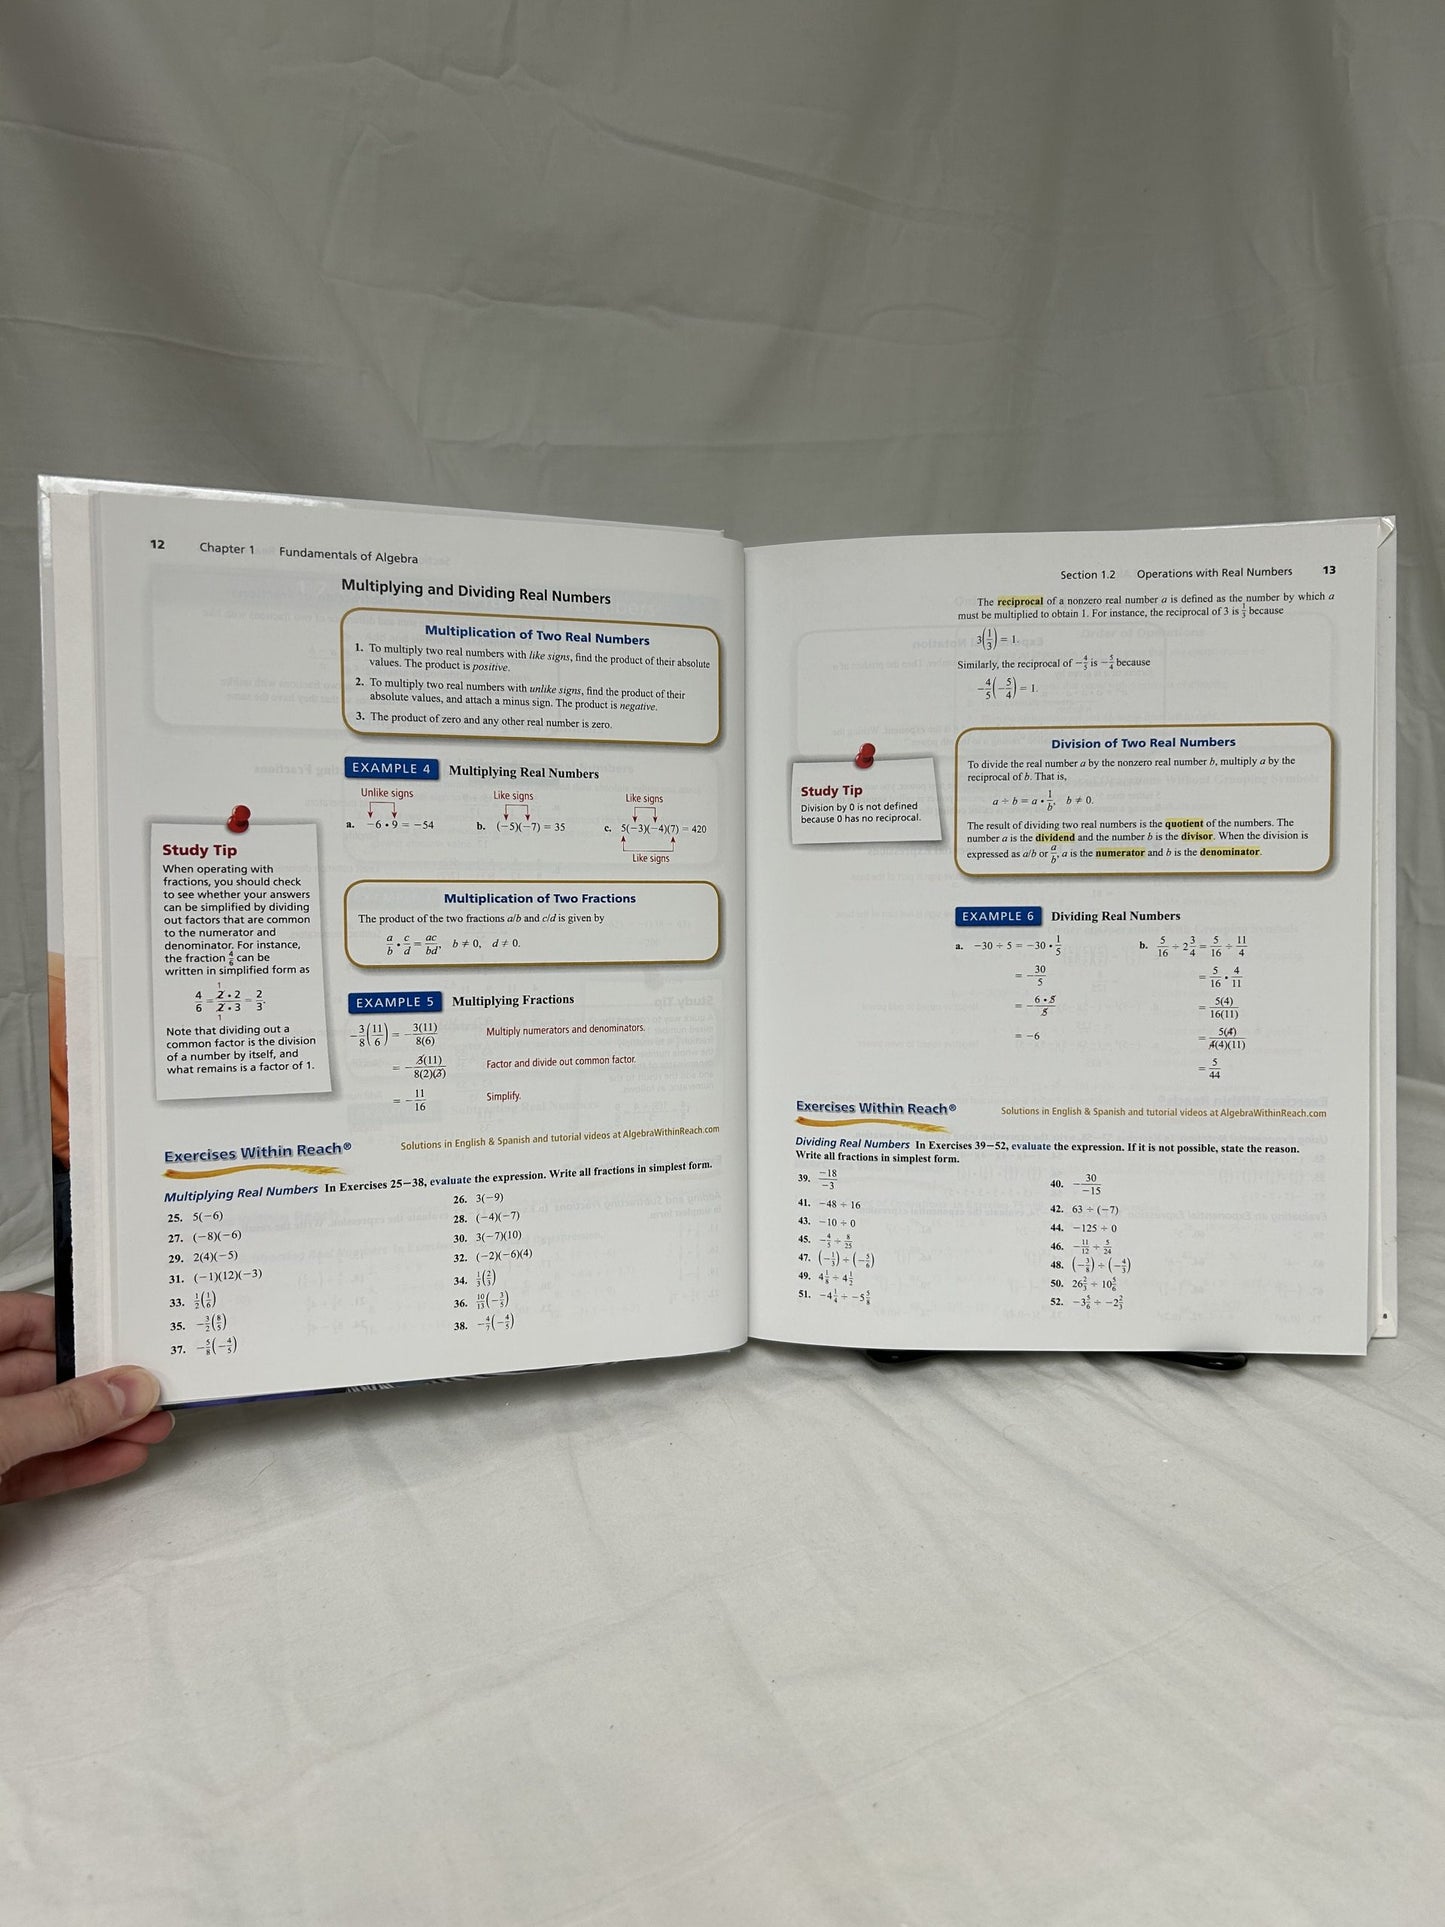 12 Chapter 1 Fundamentals of Algebra
Multiplying and Dividing Real Numbers
Multiplication of Two Real Numbers
1. To multiply two real numbers with like signs, find the product of their absolute
values. The product is positive.
2. To multiply two real numbers with unlike signs, find the product of their
absolute values, and attach a minus sign. The product is negative.
3. The product of zero and any other real number is zero.
EXAMPLE 4 Multiplying Real Numbers
Unlike signs Like signs Like signs
a. −6 • 9 = −54 b. (−5)(−7) = 35 c. 5(−3)(−4)(7) = 420
Like signs
Study Tip
When operating with
fractions, you should check
to see whether your answers
can be simplified by dividing
out factors that are common
to the numerator and
denominator. For instance,
the fraction 4/6 can be
written in simplified form as
4/6 = 2 • 2/2 • 3 = 2/3.
1
1
Note that dividing out a
common factor is the division
of a number by itself, and
what remains is a factor of 1.
Multiplication of Two Fractions
The product of the two fractions a/b and c/d is given by
a/b • c/d = ac/bd, b ≠ 0, d ≠ 0.
EXAMPLE 5 Multiplying Fractions
−3/8(11/6) = −3(11)/8(6) Multiply numerators and denominators.
= −3(11)/8(2)(3) Factor and divide out common factor.
= −11/16 Simplify.
Exercises Within Reach® Solutions in English & Spanish and tutorial videos at AlgebraWithinReach.com
Multiplying Real Numbers In Exercises 25–38, evaluate the expression. Write all fractions in simplest form.
25. 5(−6) 26. 3(−9)
27. (−8)(−6) 28. (−4)(−7)
29. 2(4)(−5) 30. 3(−7)(10)
31. (−1)(12)(−3) 32. (−2)(−6)(4)
33. 1/2(1/6) 34. 1/3(2/3)
35. −3/2(8/5) 36. 10/13(−3/5)
37. −5/8(−4/5) 38. −4/7(−4/5)
Section 1.2 Operations with Real Numbers 13
The reciprocal of a nonzero real number a is defined as the number by which a
must be multiplied to obtain 1. For instance, the reciprocal of 3 is 1/3 because
3(1/3) = 1.
Similarly, the reciprocal of −4/5 is −5/4 because
−4/5(−5/4) = 1.
Study Tip
Division by 0 is not defined
because 0 has no reciprocal.
Division of Two Real Numbers
To divide the real number a by the nonzero real number b, multiply a by the
reciprocal of b. That is,
a ÷ b = a • 1/b, b ≠ 0.
The result of dividing two real numbers is the quotient of the numbers. The
number a is the dividend and the number b is the divisor. When the division is
expressed as a/b or a/b, a is the numerator and b is the denominator.
EXAMPLE 6 Dividing Real Numbers
a. −30 ÷ 5 = −30 • 1/5 b. 5/16 ÷ 2 3/4 = 5/16 ÷ 11/4
= −30/5 = 5/16 • 4/11
= −6 • 5/5 = 5(4)/16(11)
= −6 = 5(4)/4(4)(11)
= 5/44
Exercises Within Reach® Solutions in English & Spanish and tutorial videos at AlgebraWithinReach.com
Dividing Real Numbers In Exercises 39–52, evaluate the expression. If it is not possible, state the reason.
Write all fractions in simplest form.
39. −18/−3 40. −30/−15
41. −48 ÷ 16 42. 63 ÷ (−7)
43. −10 ÷ 0 44. −125 ÷ 0
45. −4/5 ÷ 8/25 46. −11/12 ÷ 5/24
47. (−1/3) ÷ (−5/6) 48. (−3/8) ÷ (−4/3)
49. 4 1/8 ÷ 4 1/2 50. 26 2/3 ÷ 10 5/6
51. −4 1/4 ÷ −5 5/8 52. −3 5/6 ÷ −2 2/3